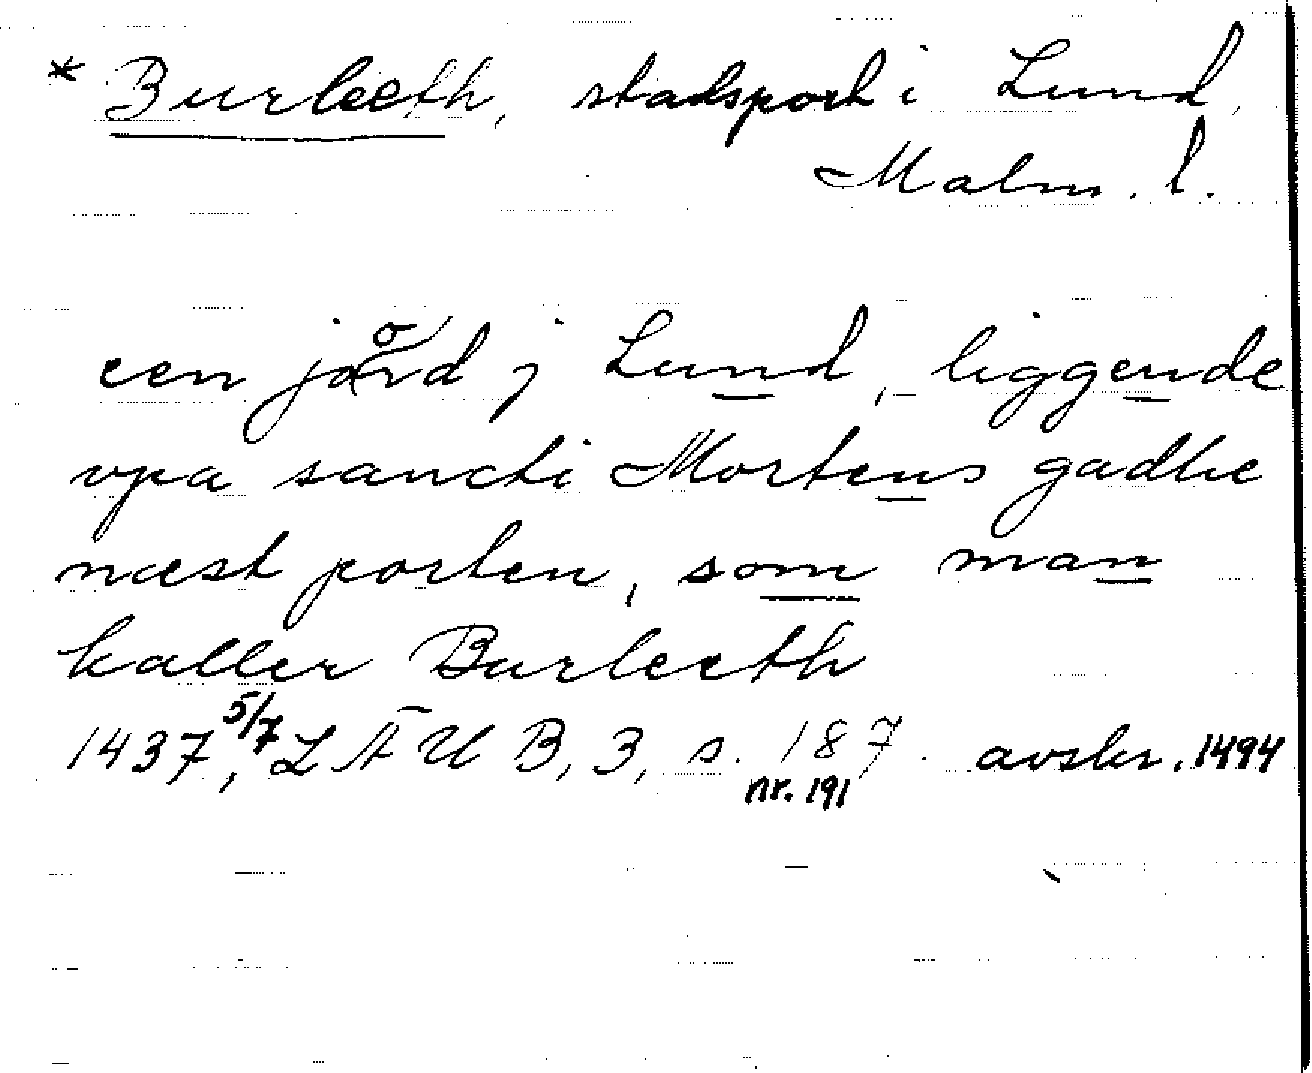 * Burleeth, stadsport i Lund,
Malm. l.
een jord j Lund, liggende
vpa sancti Mortens gadhe
næst porten, som man
kaller Burleeth
1437 5/7, LÄUB, 3, s. 187. avskr. 1494
nr. 191